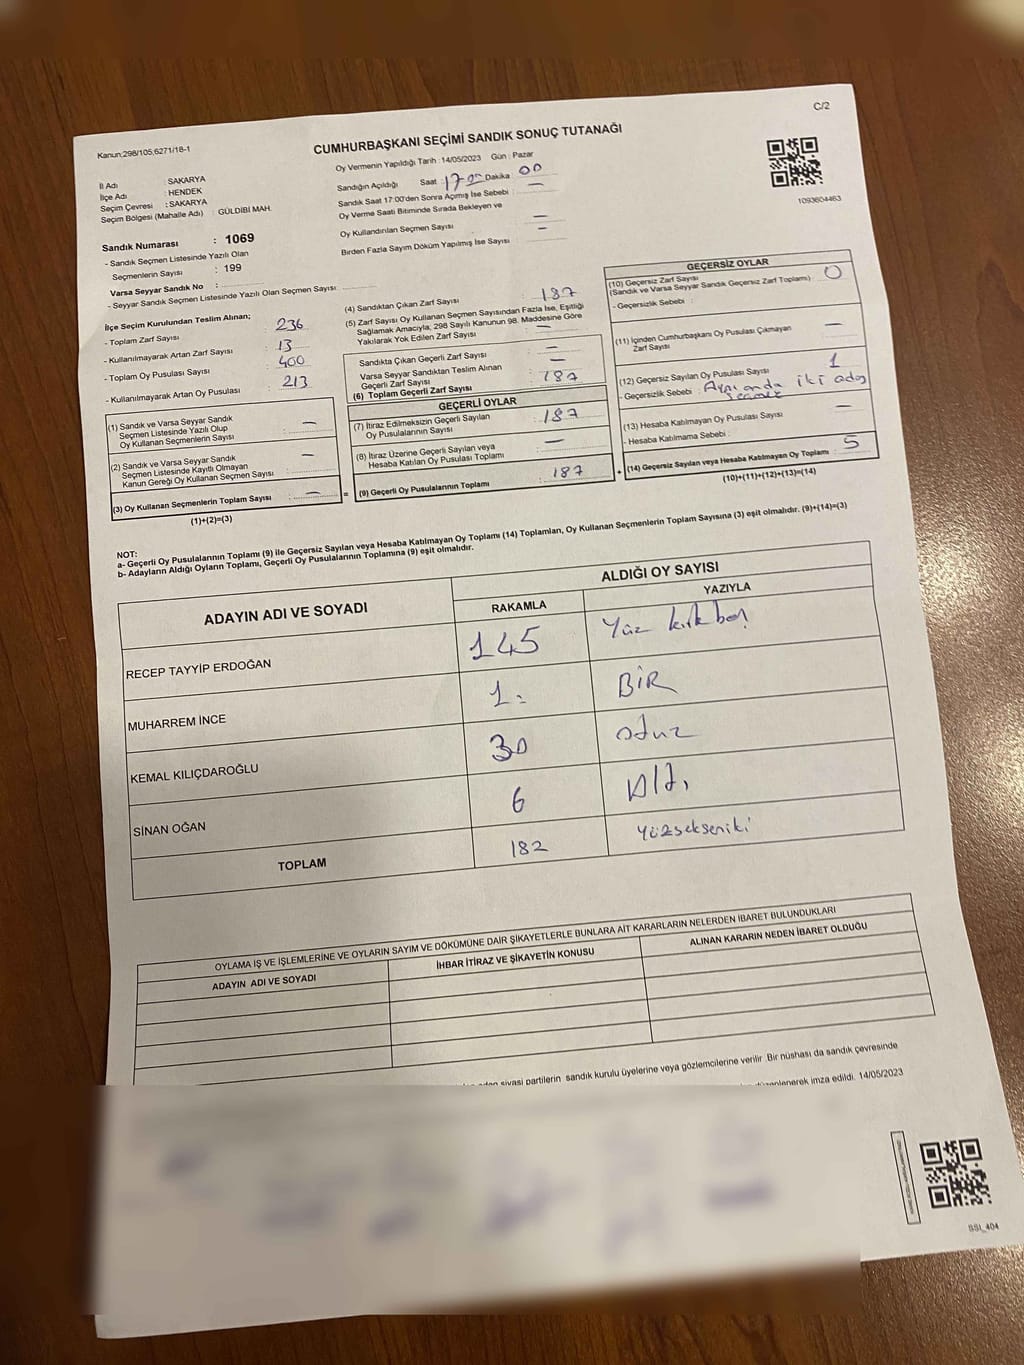 C/2
Kanun;298/105,6271/18-1
CUMHURBAŞKANI SEÇİMİ SANDIK SONUÇ TUTANAĞI
Oy Vermenin Yapıldığı Tarih : 14/05/2023 Gün : Pazar
İl Adı : SAKARYA
İlçe Adı : HENDEK
Seçim Çevresi : SAKARYA
Seçim Bölgesi (Mahalle Adı) : GÜLDİBİ MAH.
Sandığın Açıldığı Saat : 17 00 Dakika : 00
Sandık Saat 17:00'den Sonra Açımış İse Sebebi : —
Oy Verme Saati Bitiminde Sırada Bekleyen ve
Oy Kullandırılan Seçmen Sayısı : —
Birden Fazla Sayım Döküm Yapılmış İse Sayısı : —
1093604463
Sandık Numarası : 1069
- Sandık Seçmen Listesinde Yazılı Olan
Seçmenlerin Sayısı : 199
Varsa Seyyar Sandık No :
- Seyyar Sandık Seçmen Listesinde Yazılı Olan Seçmen Sayısı :
İlçe Seçim Kurulundan Teslim Alınan;
- Toplam Zarf Sayısı : 236
- Kullanılmayarak Artan Zarf Sayısı : 13
- Toplam Oy Pusulası Sayısı : 400
- Kullanılmayarak Artan Oy Pusulası : 213
(1) Sandık ve Varsa Seyyar Sandık
Seçmen Listesinde Yazılı Olup
Oy Kullanan Seçmenlerin Sayısı : —
(2) Sandık ve Varsa Seyyar Sandık
Seçmen Listesinde Kayıtlı Olmayan
Kanun Gereği Oy Kullanan Seçmen Sayısı : —
(3) Oy Kullanan Seçmenlerin Toplam Sayısı : — =
(1)+(2)=(3)
(4) Sandıktan Çıkan Zarf Sayısı : 187
(5) Zarf Sayısı Oy Kullanan Seçmen Sayısından Fazla İse, Eşitliği
Sağlamak Amacıyla; 298 Sayılı Kanunun 98. Maddesine Göre
Yakılarak Yok Edilen Zarf Sayısı : —
Sandıkta Çıkan Geçerli Zarf Sayısı : —
Varsa Seyyar Sandıktan Teslim Alınan
Geçerli Zarf Sayısı : —
(6) Toplam Geçerli Zarf Sayısı : 187
GEÇERLİ OYLAR
(7) İtiraz Edilmeksizin Geçerli Sayılan
Oy Pusulalarının Sayısı : 187
(8) İtiraz Üzerine Geçerli Sayılan veya
Hesaba Katılan Oy Pusulası Toplamı : —
(9) Geçerli Oy Pusulalarının Toplamı : 187 +
GEÇERSİZ OYLAR
(10) Geçersiz Zarf Sayısı
(Sandık ve Varsa Seyyar Sandık Geçersiz Zarf Toplamı) : 0
- Geçersizlik Sebebi :
(11) İçinden Cumhurbaşkanı Oy Pusulası Çıkmayan
Zarf Sayısı : —
(12) Geçersiz Sayılan Oy Pusulası Sayısı : 1
- Geçersizlik Sebebi : Aynı anda iki aday
seçmek
(13) Hesaba Katılmayan Oy Pusulası Sayısı : —
- Hesaba Katılmama Sebebi :
(14) Geçersiz Sayılan veya Hesaba Katılmayan Oy Toplamı : 5
(10)+(11)+(12)+(13)=(14)
NOT:
a- Geçerli Oy Pusulalarının Toplamı (9) ile Geçersiz Sayılan veya Hesaba Katılmayan Oy Toplamı (14) Toplamları, Oy Kullanan Seçmenlerin Toplam Sayısına (3) eşit olmalıdır. (9)+(14)=(3)
b- Adayların Aldığı Oyların Toplamı, Geçerli Oy Pusulalarının Toplamına (9) eşit olmalıdır.
ADAYIN ADI VE SOYADI ALDIĞI OY SAYISI
RAKAMLA YAZIYLA
RECEP TAYYİP ERDOĞAN 145 Yüz kırk beş
MUHARREM İNCE 1 BİR
KEMAL KILIÇDAROĞLU 30 otuz
SİNAN OĞAN 6 Altı
TOPLAM 182 yüzsekseniki
OYLAMA İŞ VE İŞLEMLERİNE VE OYLARIN SAYIM VE DÖKÜMÜNE DAİR ŞİKAYETLERLE BUNLARA AİT KARARLARIN NELERDEN İBARET BULUNDUKLARI
ADAYIN ADI VE SOYADI İHBAR İTİRAZ VE ŞİKAYETİN KONUSU ALINAN KARARIN NEDEN İBARET OLDUĞU
siyasi partilerin sandık kurulu üyelerine veya gözlemcilerine verilir. Bir nüshası da sandık çevresinde
düzenlenerek imza edildi. 14/05/2023
SSI_404